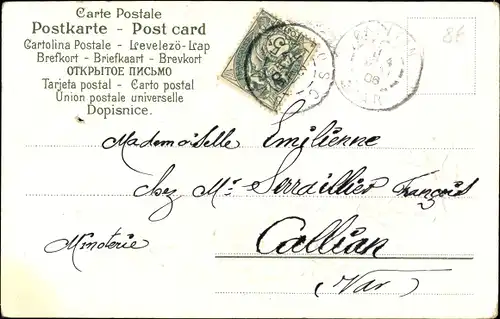 Carte Postale
Postkarte - Post card
Cartolina Postale - Levelezö-Lap
Brefkort - Briefkaart - Brevkort
ОТКРЫТОЕ ПИСЬМО
Tarjeta postal - Carto postal
Union postale universelle
Dopisnice.
86
Mademoiselle Emilienne
chez Mr Serraillier François
Minoterie
Callian
(Var)